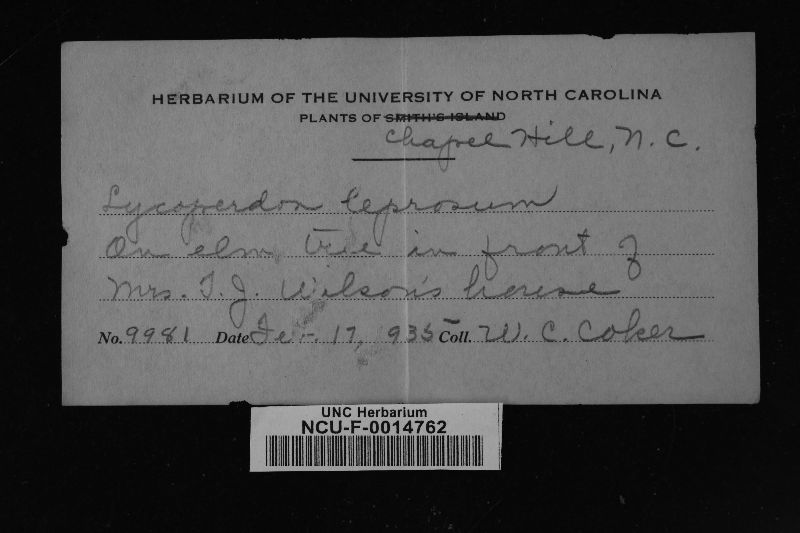 HERBARIUM OF THE UNIVERSITY OF NORTH CAROLINA
PLANTS OF SMITH'S ISLAND
Chapel Hill, N. C.
Lycoperdon leprosum
On elm tree in front of
Mrs. T. J. Wilson's house
No. 9981 Date 17, 935 Coll. W. C. Coker
UNC Herbarium
NCU-F-0014762